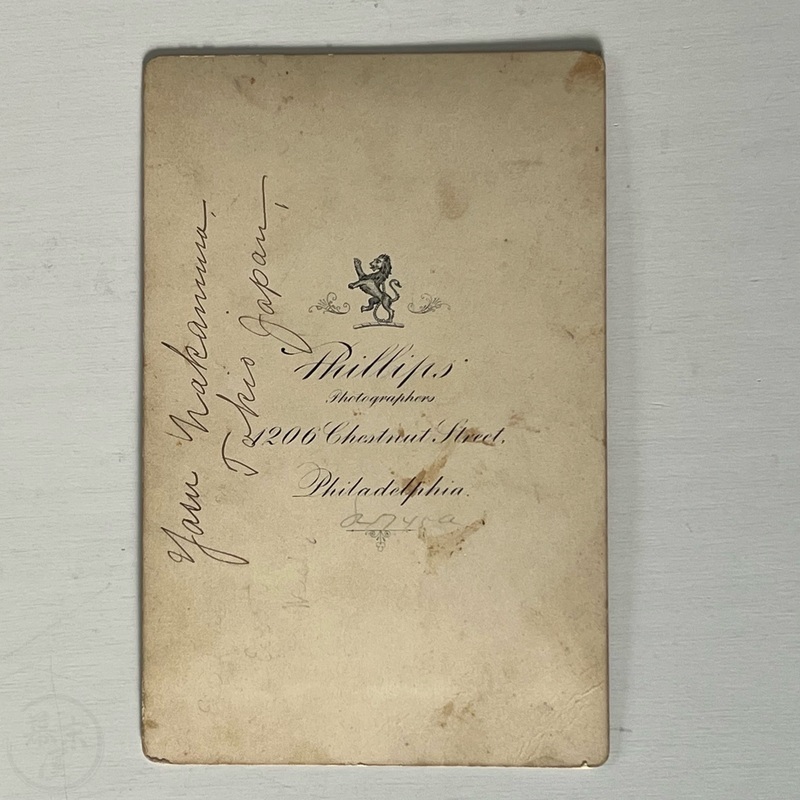 Phillips
Photographers
1206 Chestnut Street,
Philadelphia.
Yasu Nakamura,
Tokio Japan,